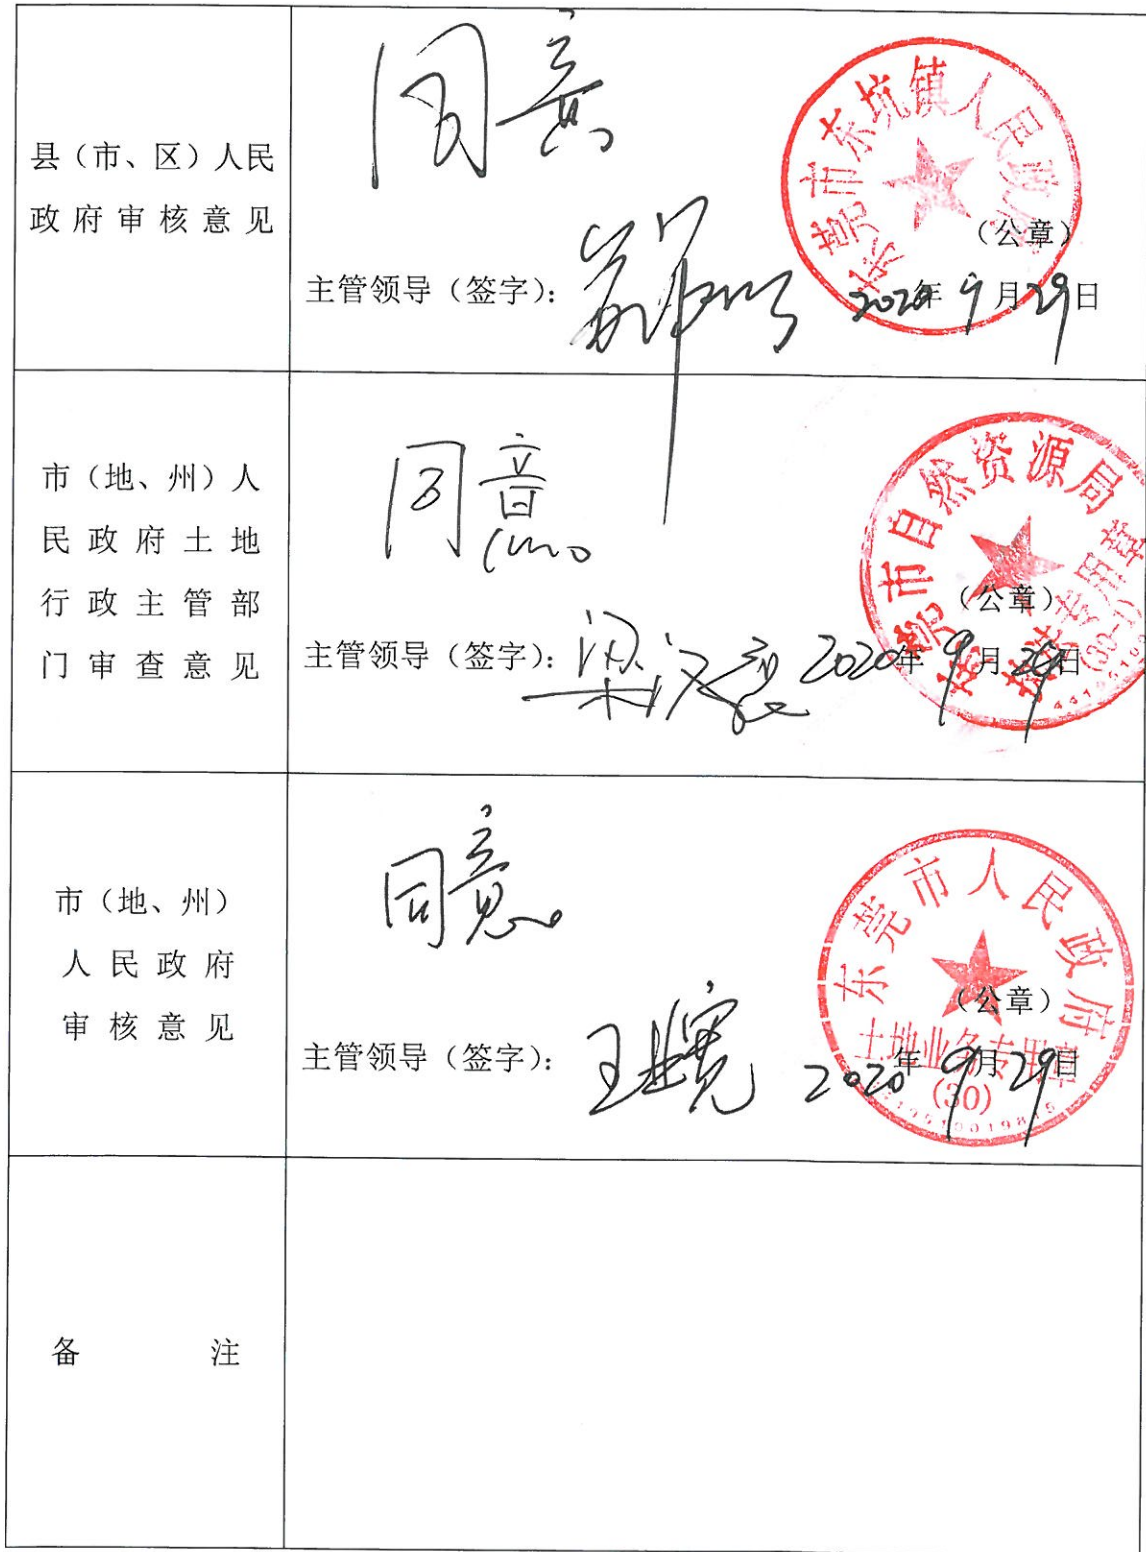 县（市、区）人民
政府审核意见
同意
东莞市东坑镇人民政府
（公章）
主管领导（签字）：
2020年9月29日
市（地、州）人
民政府土地
行政主管部
门审查意见
同意
东莞市自然资源局
（公章）
主管领导（签字）：
2020年9月29日
市（地、州）
人民政府
审核意见
同意
东莞市人民政府
土地业务专用章
(30)
（公章）
主管领导（签字）：
2020年9月29日
备注